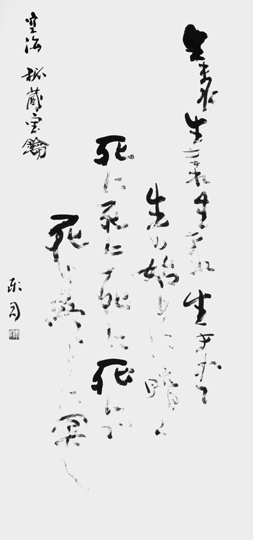 生まれ生まれ生まれ生まれて
生の始めに暗く
死に死に死に死
死の終りに冥し
空海 秘蔵宝鑰